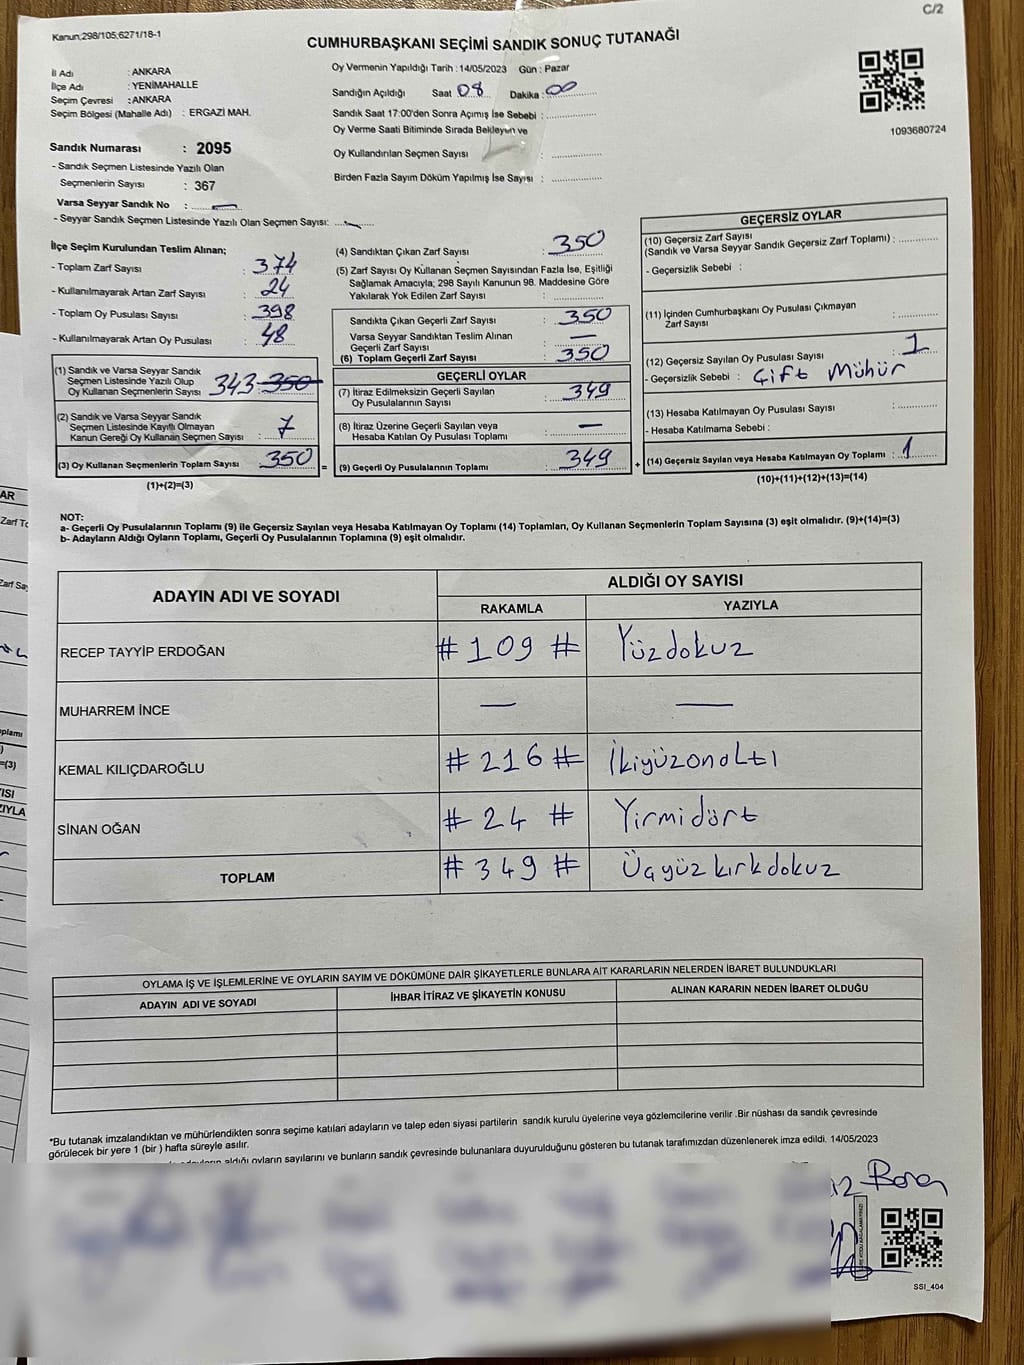 C/2
Kanun;298/105;6271/18-1
CUMHURBAŞKANI SEÇİMİ SANDIK SONUÇ TUTANAĞI
İl Adı : ANKARA
İlçe Adı : YENİMAHALLE
Seçim Çevresi : ANKARA
Seçim Bölgesi (Mahalle Adı) : ERGAZİ MAH.
Oy Vermenin Yapıldığı Tarih : 14/05/2023 Gün : Pazar
Sandığın Açıldığı Saat 08 Dakika : 00
Sandık Saat 17:00'den Sonra Açımış İse Sebebi :
Oy Verme Saati Bitiminde Sırada Bekleyen ve
Oy Kullandırılan Seçmen Sayısı :
Birden Fazla Sayım Döküm Yapılmış İse Sayısı :
1093680724
Sandık Numarası : 2095
- Sandık Seçmen Listesinde Yazılı Olan
Seçmenlerin Sayısı : 367
Varsa Seyyar Sandık No : —
- Seyyar Sandık Seçmen Listesinde Yazılı Olan Seçmen Sayısı:
İlçe Seçim Kurulundan Teslim Alınan;
- Toplam Zarf Sayısı : 374
- Kullanılmayarak Artan Zarf Sayısı : 24
- Toplam Oy Pusulası Sayısı : 398
- Kullanılmayarak Artan Oy Pusulası : 48
(1) Sandık ve Varsa Seyyar Sandık
Seçmen Listesinde Yazılı Olup
Oy Kullanan Seçmenlerin Sayısı 343 350
(2) Sandık ve Varsa Seyyar Sandık
Seçmen Listesinde Kayıtlı Olmayan
Kanun Gereği Oy Kullanan Seçmen Sayısı : 7
(3) Oy Kullanan Seçmenlerin Toplam Sayısı 350 =
(1)+(2)=(3)
(4) Sandıktan Çıkan Zarf Sayısı : 350
(5) Zarf Sayısı Oy Kullanan Seçmen Sayısından Fazla İse, Eşitliği
Sağlamak Amacıyla; 298 Sayılı Kanunun 98. Maddesine Göre
Yakılarak Yok Edilen Zarf Sayısı :
Sandıkta Çıkan Geçerli Zarf Sayısı : 350
Varsa Seyyar Sandıktan Teslim Alınan
Geçerli Zarf Sayısı : —
(6) Toplam Geçerli Zarf Sayısı : 350
GEÇERLİ OYLAR
(7) İtiraz Edilmeksizin Geçerli Sayılan
Oy Pusulalarının Sayısı : 349
(8) İtiraz Üzerine Geçerli Sayılan veya
Hesaba Katılan Oy Pusulası Toplamı : —
(9) Geçerli Oy Pusulalarının Toplamı : 349 +
GEÇERSİZ OYLAR
(10) Geçersiz Zarf Sayısı
(Sandık ve Varsa Seyyar Sandık Geçersiz Zarf Toplamı) :
- Geçersizlik Sebebi :
(11) İçinden Cumhurbaşkanı Oy Pusulası Çıkmayan
Zarf Sayısı :
(12) Geçersiz Sayılan Oy Pusulası Sayısı : 1
- Geçersizlik Sebebi : Çift Mühür
(13) Hesaba Katılmayan Oy Pusulası Sayısı :
- Hesaba Katılmama Sebebi :
(14) Geçersiz Sayılan veya Hesaba Katılmayan Oy Toplamı : 1
(10)+(11)+(12)+(13)=(14)
NOT:
a- Geçerli Oy Pusulalarının Toplamı (9) ile Geçersiz Sayılan veya Hesaba Katılmayan Oy Toplamı (14) Toplamları, Oy Kullanan Seçmenlerin Toplam Sayısına (3) eşit olmalıdır. (9)+(14)=(3)
b- Adayların Aldığı Oyların Toplamı, Geçerli Oy Pusulalarının Toplamına (9) eşit olmalıdır.
ADAYIN ADI VE SOYADI
ALDIĞI OY SAYISI
RAKAMLA YAZIYLA
RECEP TAYYİP ERDOĞAN # 109 # Yüzdokuz
MUHARREM İNCE — —
KEMAL KILIÇDAROĞLU # 216 # İkiyüzonaltı
SİNAN OĞAN # 24 # Yirmidört
TOPLAM # 349 # Üçyüzkırkdokuz
OYLAMA İŞ VE İŞLEMLERİNE VE OYLARIN SAYIM VE DÖKÜMÜNE DAİR ŞİKAYETLERLE BUNLARA AİT KARARLARIN NELERDEN İBARET BULUNDUKLARI
ADAYIN ADI VE SOYADI İHBAR İTİRAZ VE ŞİKAYETİN KONUSU ALINAN KARARIN NEDEN İBARET OLDUĞU
*Bu tutanak imzalandıktan ve mühürlendikten sonra seçime katılan adayların ve talep eden siyasi partilerin sandık kurulu üyelerine veya gözlemcilerine verilir .Bir nüshası da sandık çevresinde
görülecek bir yere 1 (bir ) hafta süreyle asılır.
aldığı oyların sayılarını ve bunların sandık çevresinde bulunanlara duyurulduğunu gösteren bu tutanak tarafımızdan düzenlenerek imza edildi. 14/05/2023
SSI_404